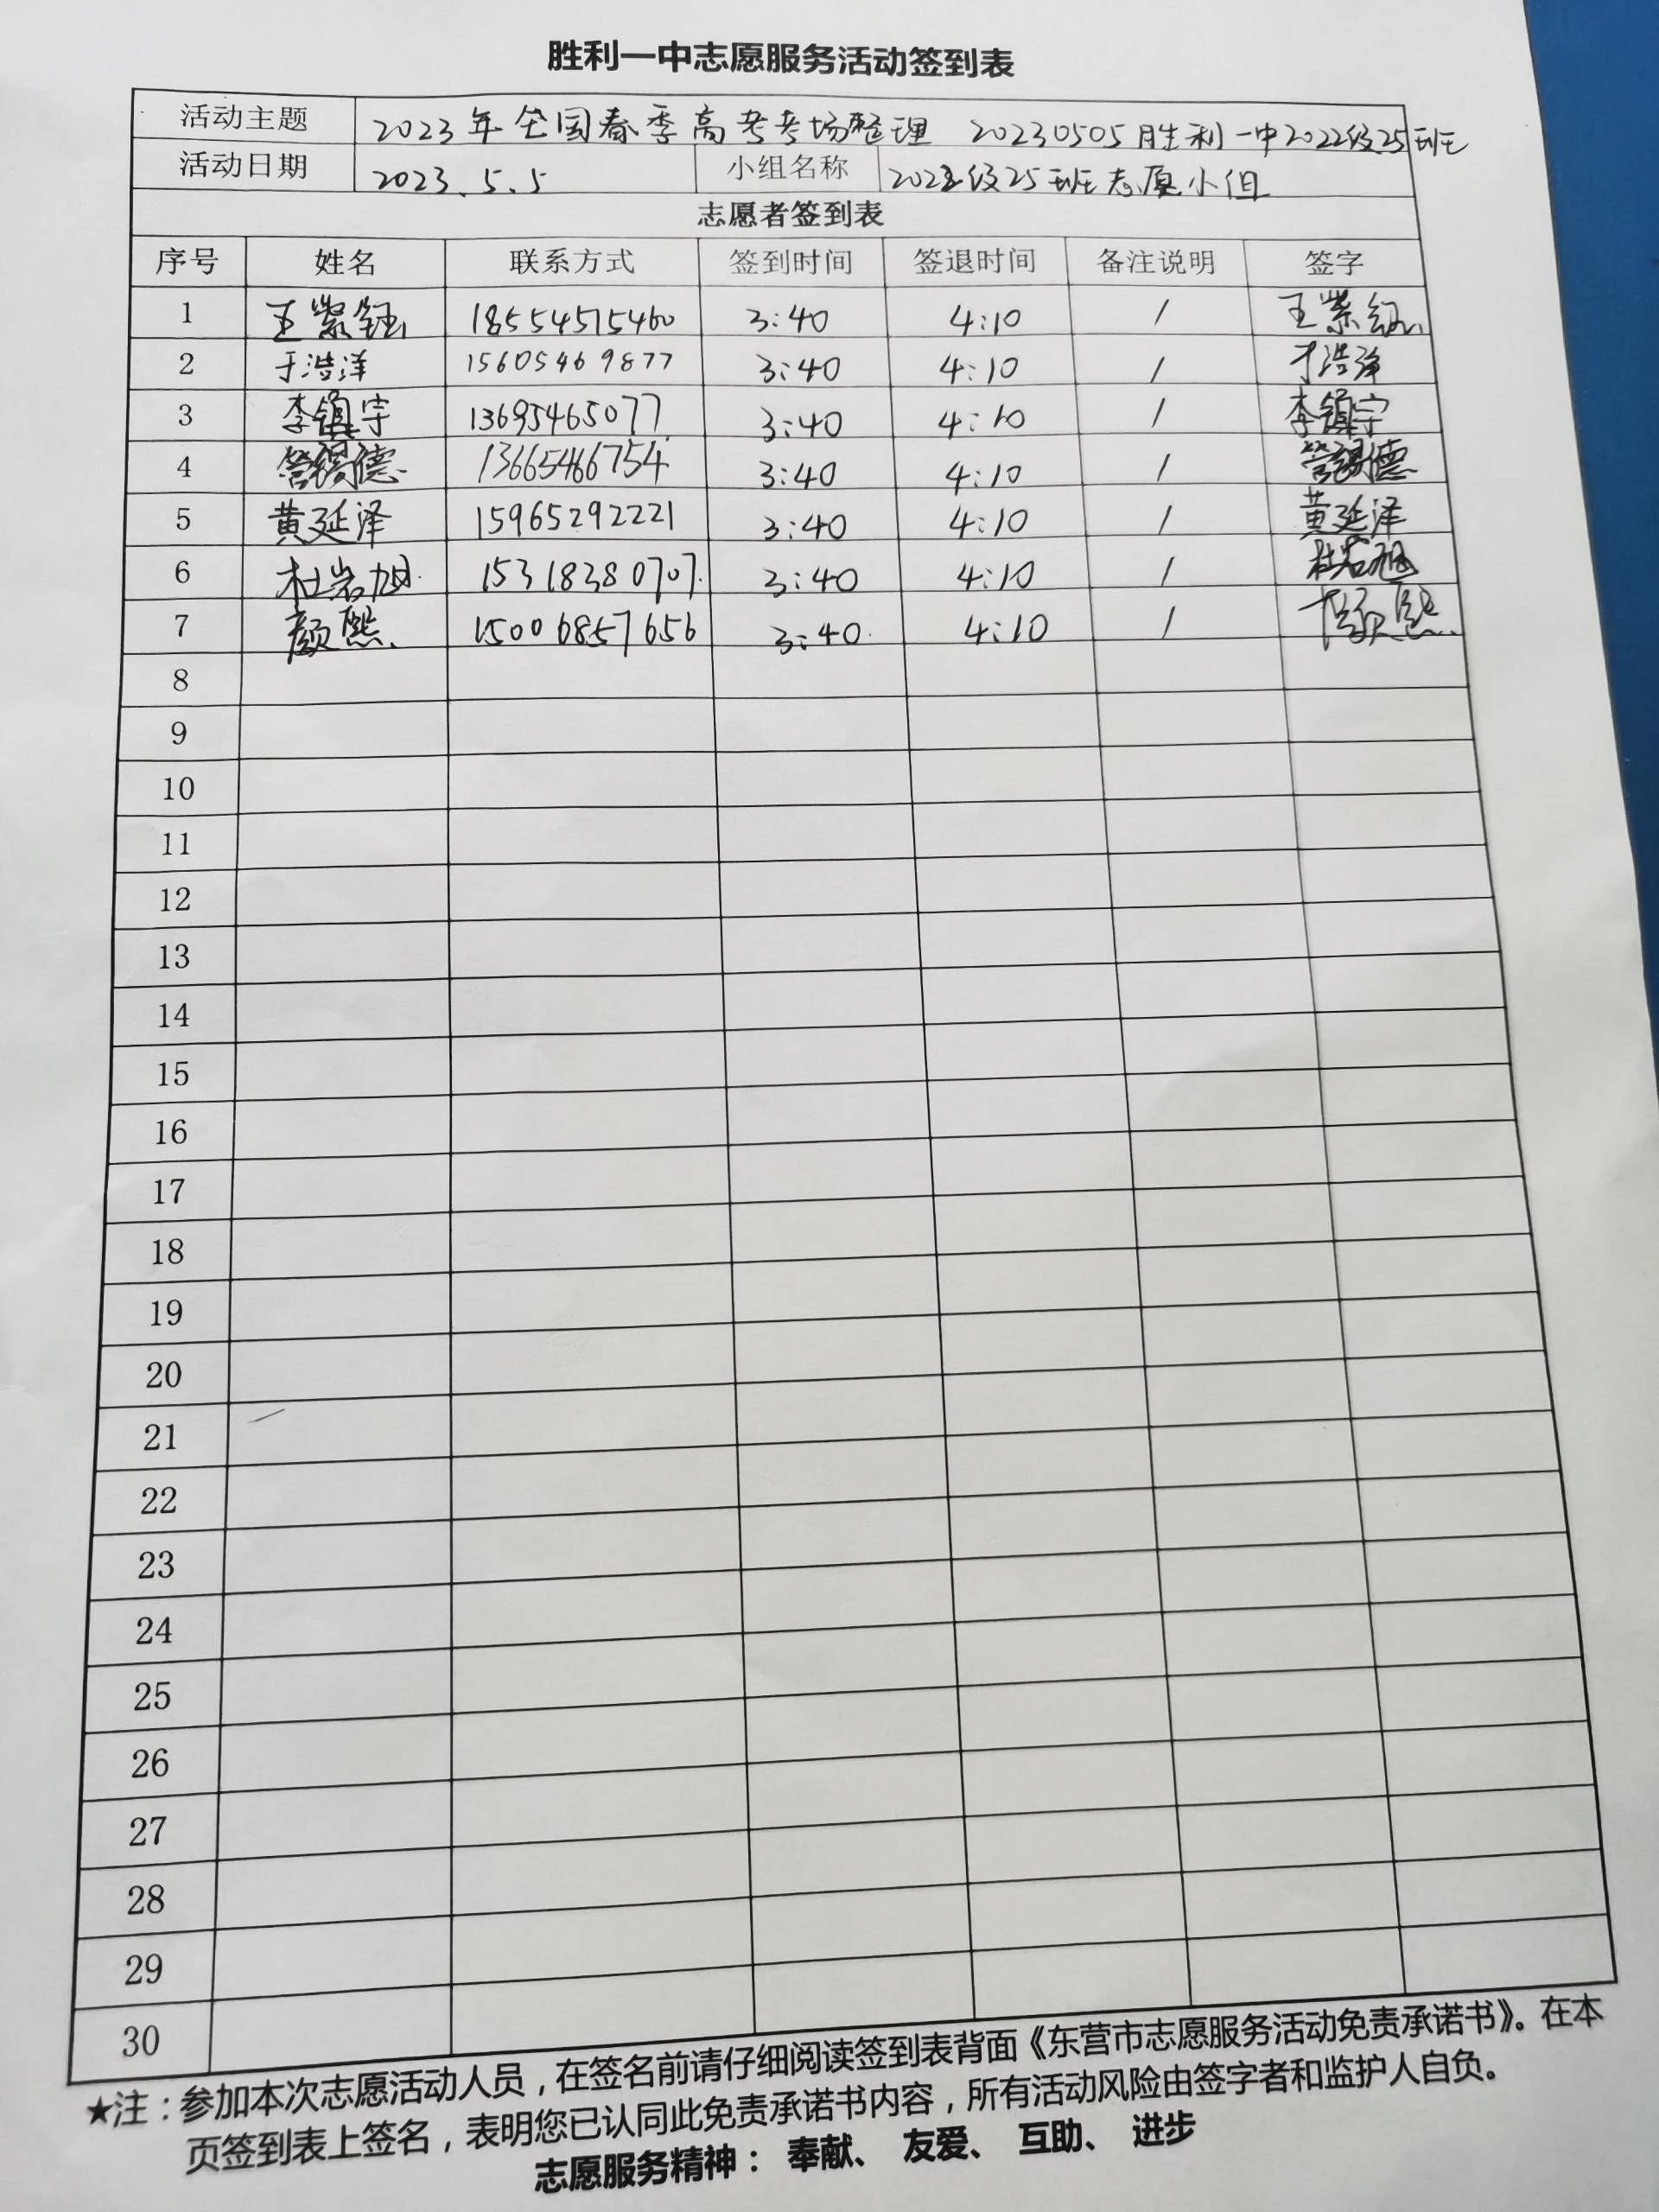 胜利一中志愿服务活动签到表
活动主题 2023年全国春季高考考场整理 20230505胜利一中2022级25班
活动日期 2023.5.5 小组名称 2022级25班志愿小组
志愿者签到表
序号 姓名 联系方式 签到时间 签退时间 备注说明 签字
1 王紫钰 18554515460 3:40 4:10 / 王紫钰
2 于浩洋 15605469877 3:40 4:10 / 于浩洋
3 李镇宇 13695465077 3:40 4:10 / 李镇宇
4 13665466754 3:40 4:10 /
5 黄延泽 15965292221 3:40 4:10 / 黄延泽
6 杜岩旭 15318380707 3:40 4:10 / 杜岩旭
7 颜熙 15006857656 3:40 4:10 / 颜熙
8
9
10
11
12
13
14
15
16
17
18
19
20
21
22
23
24
25
26
27
28
29
30
★注：参加本次志愿活动人员，在签名前请仔细阅读签到表背面《东营市志愿服务活动免责承诺书》。在本
页签到表上签名，表明您已认同此免责承诺书内容，所有活动风险由签字者和监护人自负。
志愿服务精神： 奉献、 友爱、 互助、 进步